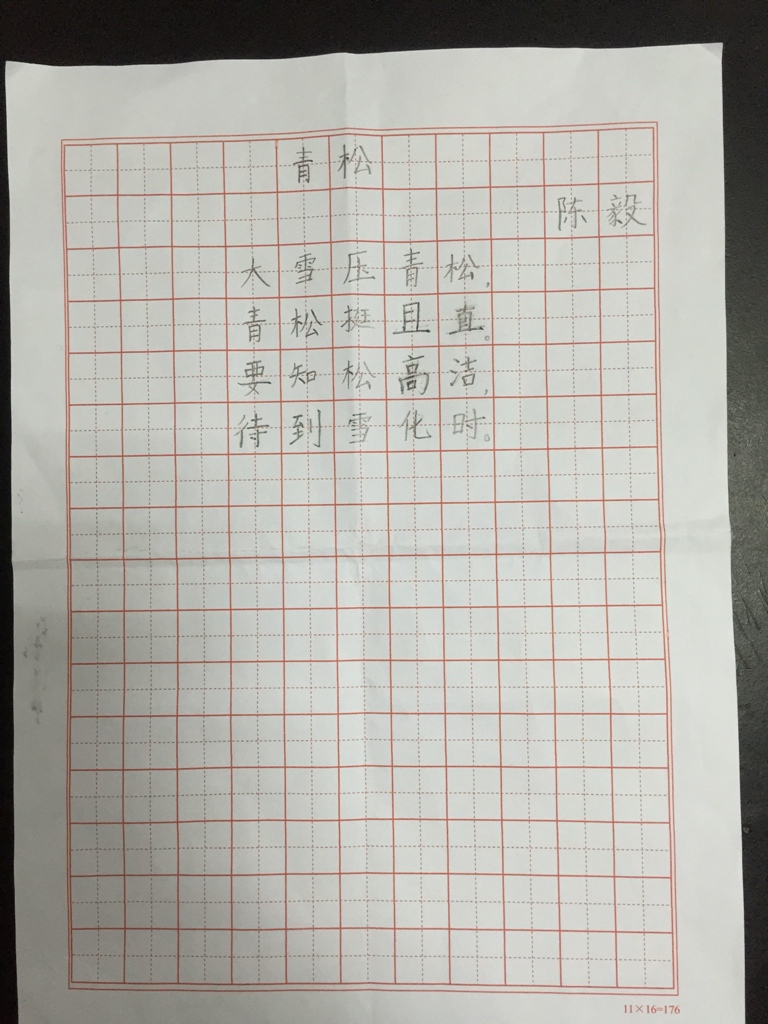 青松
陈毅
大雪压青松，
青松挺且直。
要知松高洁，
待到雪化时。
11×16=176